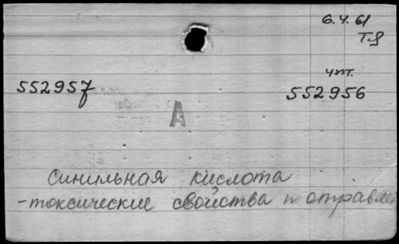 6.4.61
чит.
552957
552956
A
Синильная кислота
-токсические свойства и отравле